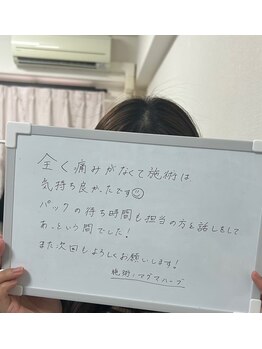 全く痛みがなくて施術は
気持ち良かったです☺
パックの待ち時間も担当の方と話しをして
あっという間でした！
また次回もよろしくお願いします！
施術：マグマハーブ